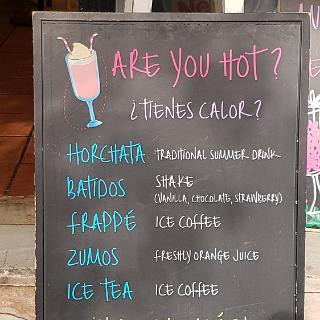 ARE YOU HOT?
¿TIENES CALOR?
HORCHATA TRADITIONAL SUMMER DRINK
BATIDOS SHAKE
(VANILLA, CHOCOLATE, STRAWBERRY)
FRAPPÉ ICE COFFEE
ZUMOS FRESHLY ORANGE JUICE
ICE TEA ICE COFFEE